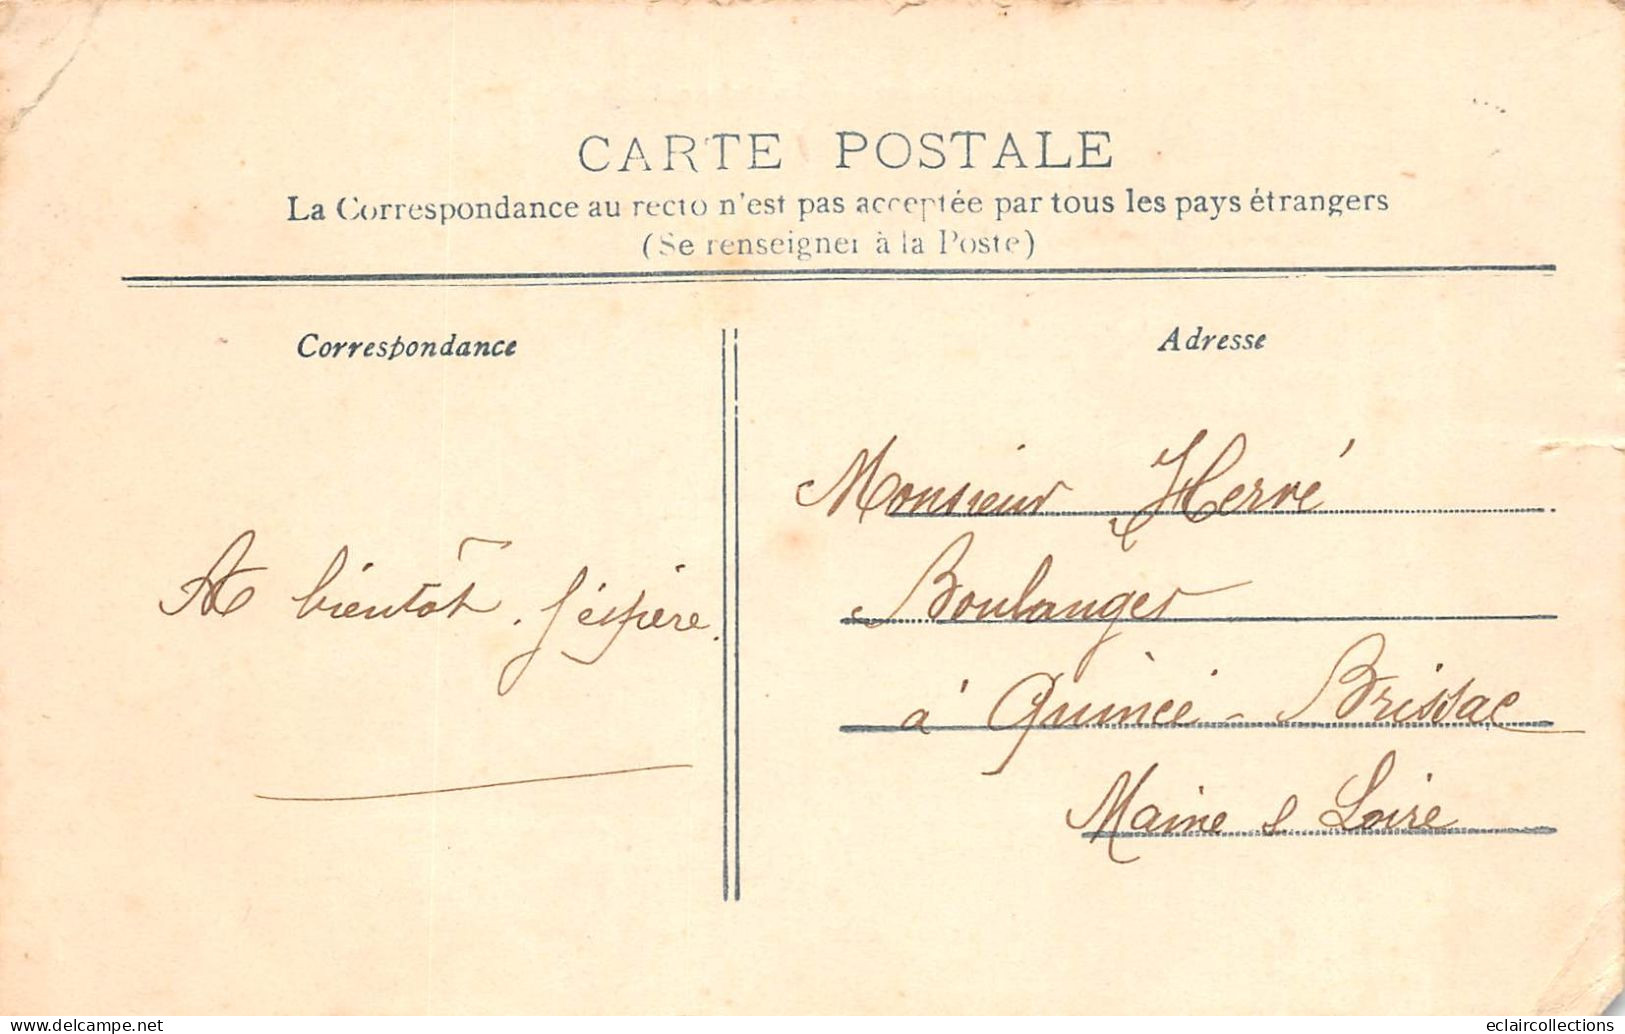 CARTE POSTALE
La Correspondance au recto n'est pas acceptée par tous les pays étrangers
(Se renseigner à la Poste)
Correspondance
A bientôt. j'espère.
Adresse
Monsieur Hervé
Boulanger
à Quincé - Brissac
Maine & Loire
eclaircollections